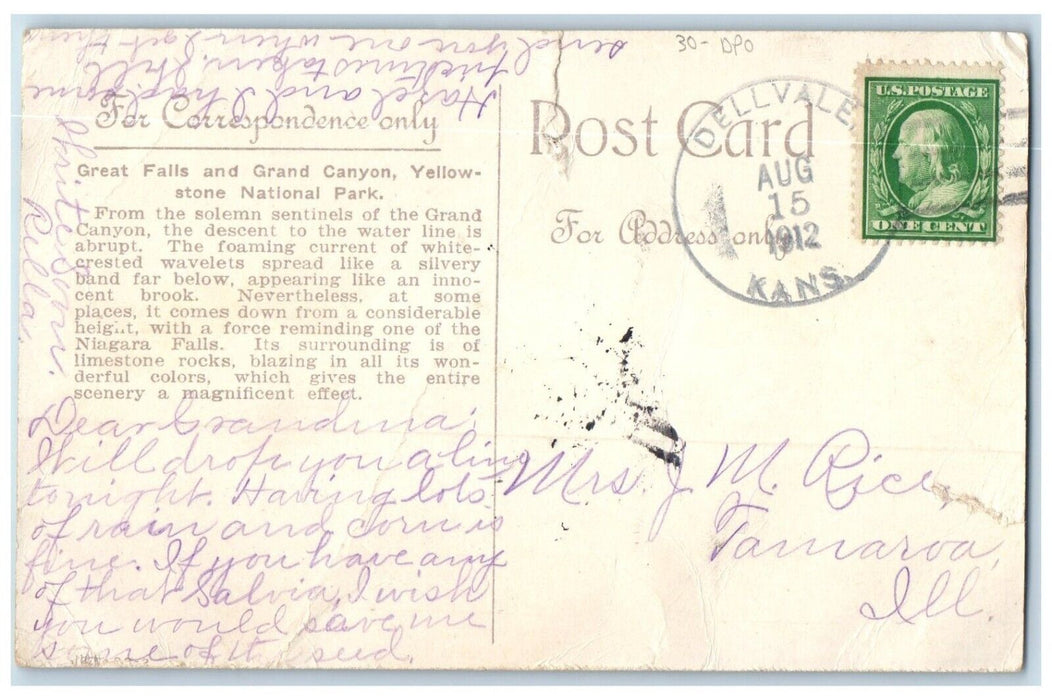 30- DPO
Post Card
For Address only
DELLVALE
AUG
15
1912
KANS.
U.S. POSTAGE
ONE CENT
For Correspondence only
Great Falls and Grand Canyon, Yellow-
stone National Park.
From the solemn sentinels of the Grand
Canyon, the descent to the water line is
abrupt. The foaming current of white-
crested wavelets spread like a silvery
band far below, appearing like an inno-
cent brook. Nevertheless, at some
places, it comes down from a considerable
height, with a force reminding one of the
Niagara Falls. Its surrounding is of
limestone rocks, blazing in all its won-
derful colors, which gives the entire
scenery a magnificent effect.
Dear Grandma;
Will drop you a line
tonight. Having lots
of rain and corn is
fine. If you have any
of that Salvia, I wish
you would save me
some of it seed.
Hazel and I had some
pictures taken. Will
send you one when I get them
Write soon.
Rilla.
Mrs. J M. Rice,
Tamaroa,
Ill.